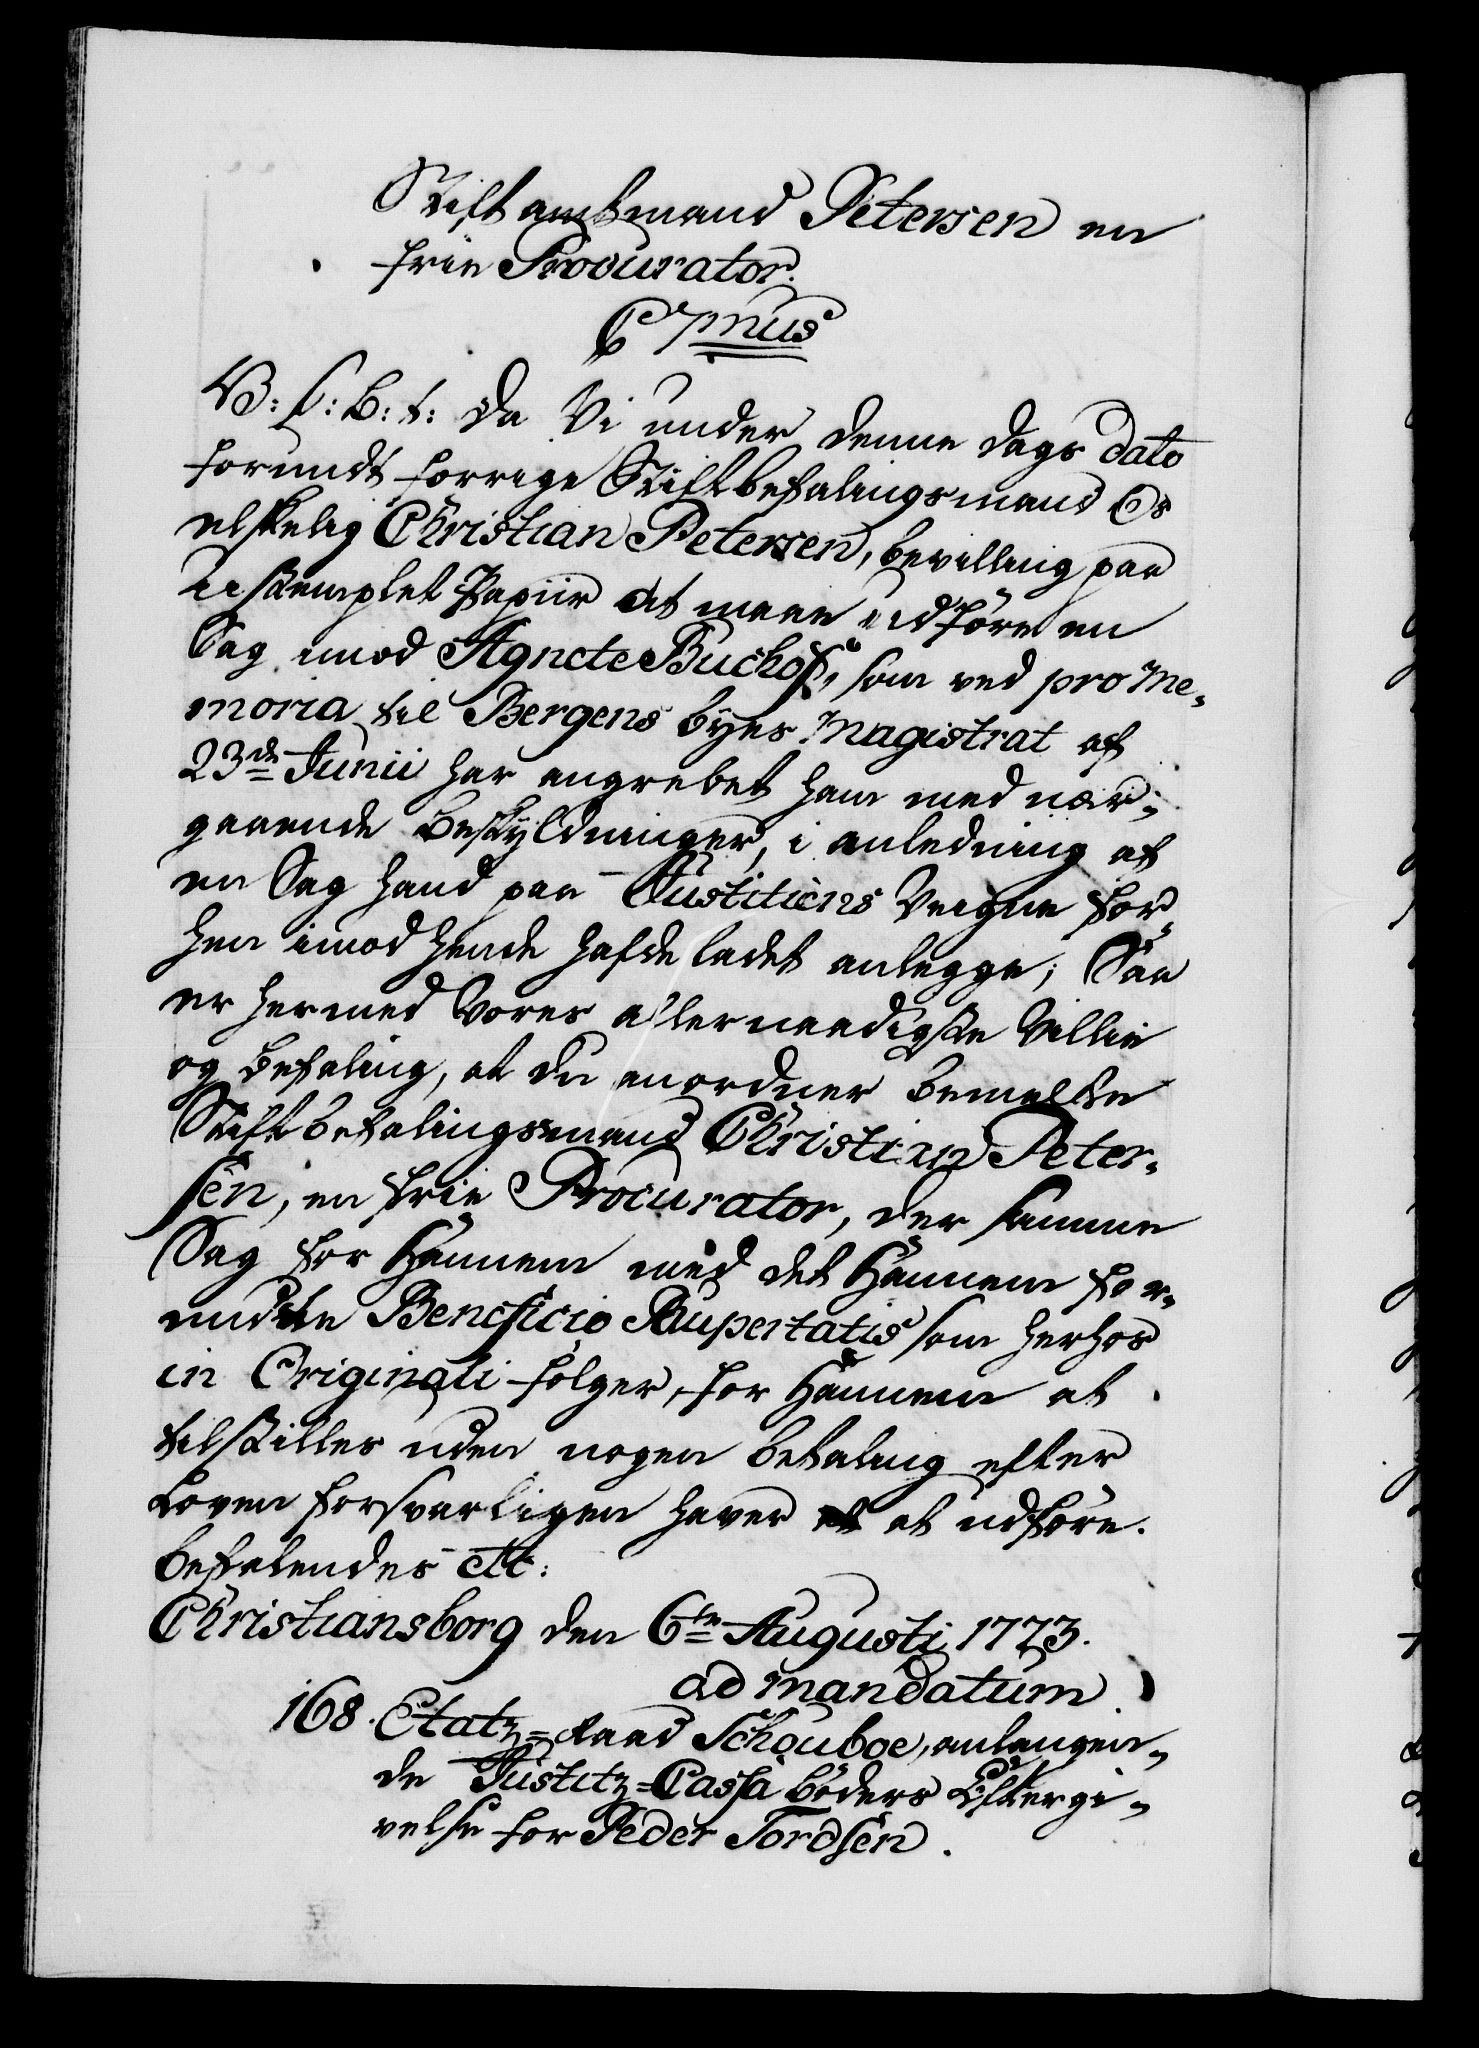 Stiftamtmand Petersen en
frie Procurator.
C 7mus
V: S: B: t: Da Vi under denne dags dato
forundt forrige Stiftbefalingsmand Os
elskelig Christian Petersen, bevilling paa
ustemplet Papiir at maae udføre en
Sag imod Agnete Buchoff, som ved pro Me-
moria til Bergens byes Magistrat af
23de Junii har angrebet ham med nær-
gaaende Beskyldninger, i anledning af
en Sag hand paa Justitiens Veigne for-
hen imod hende hafde ladet anlegge; Saa
er hermed Vores allernaadigste Villie
og befaling, at du anordner bemelte
Stiftbefalingsmand Christian Peter-
sen, en frie Procurator, der samme
Sag for Hannem med det Hannem for-
undte Beneficio Paupertatis som herhos
in Originali følger, for Hannem at
tilstilles uden nogen betaling efter
Loven forsvarligen haver at udføre.
befalendes etc:
Christiansborg den 6te Augusti 1773.
ad mandatum
168. Etatz-Raad Schouboe, anlangen-
de Justitz-Cassa bøders Eftergi-
velse for Peder Tordsen.